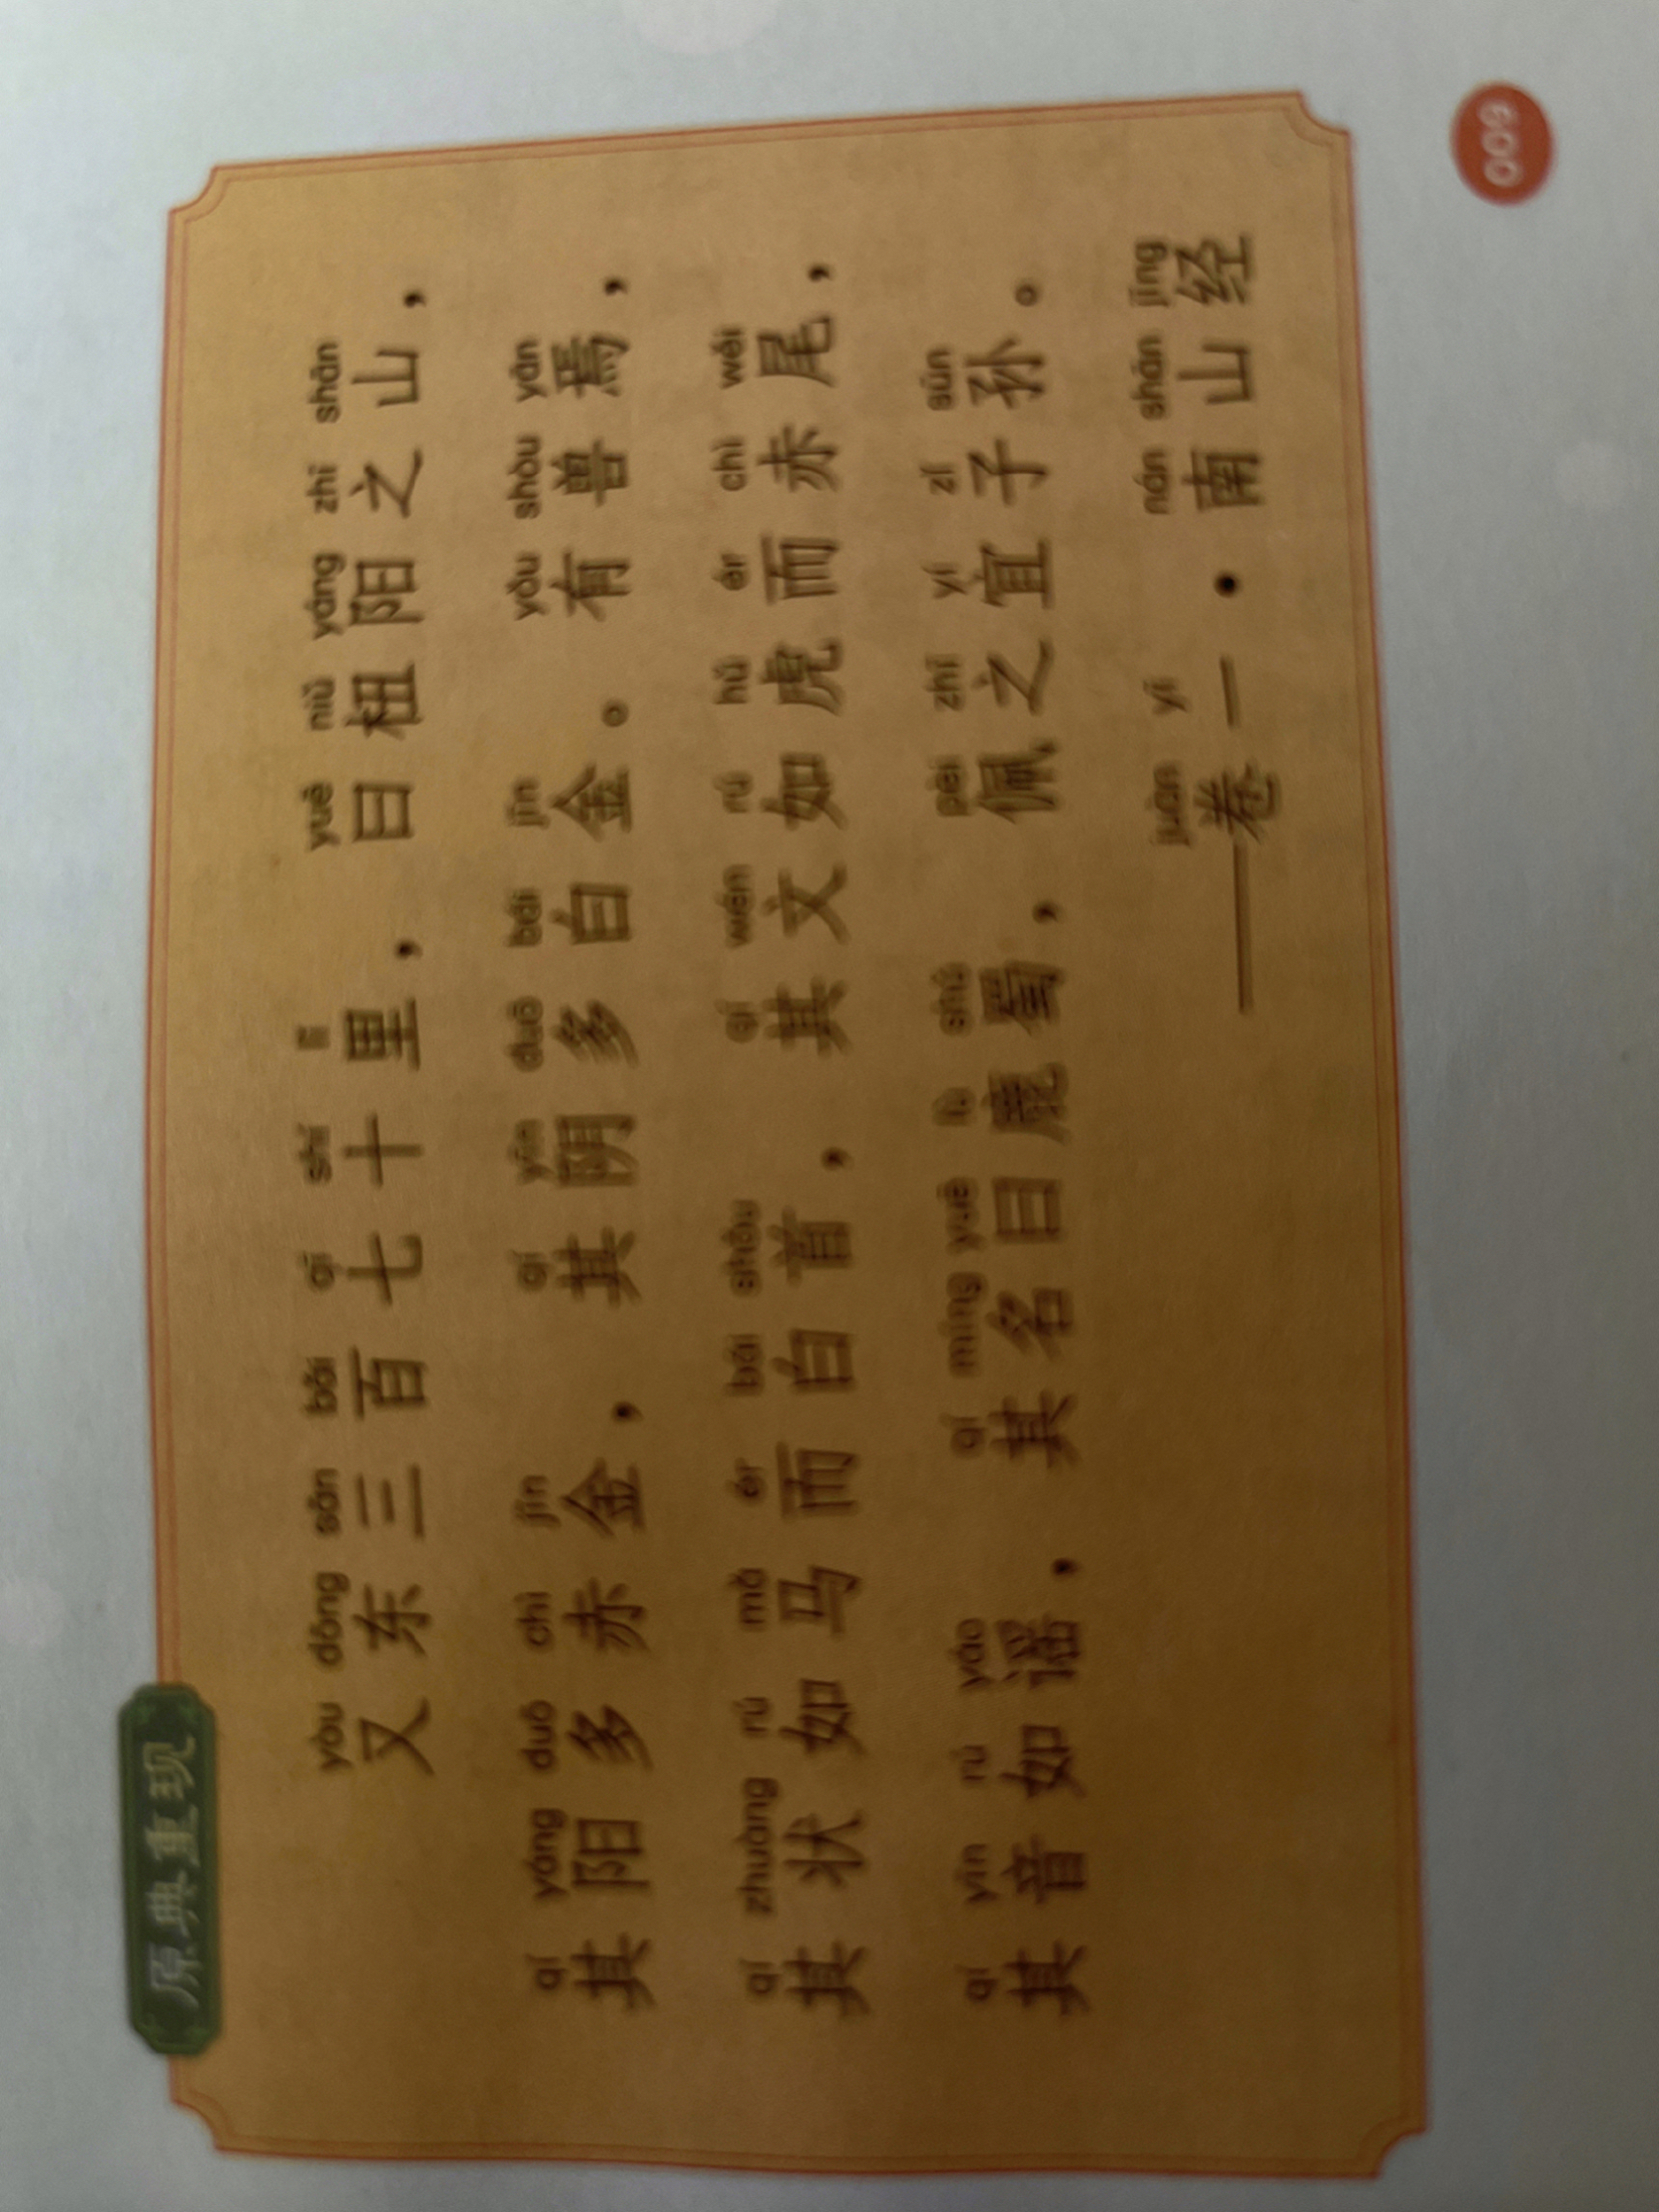 原典重现
yòu dōng sān bǎi qī shí lǐ yuē niǔ yáng zhī shān
又东三百七十里，曰杻阳之山，
qí yáng duō chì jīn qí yīn duō bái jīn yǒu shòu yān
其阳多赤金，其阴多白金。有兽焉，
qí zhuàng rú mǎ ér bái shǒu qí wén rú hǔ ér chì wěi
其状如马而白首，其文如虎而赤尾，
qí yīn rú yáo qí míng yuē lù shǔ pèi zhī yí zǐ sūn
其音如谣，其名曰鹿蜀，佩之宜子孙。
juàn yī nán shān jīng
——卷一·南山经
009